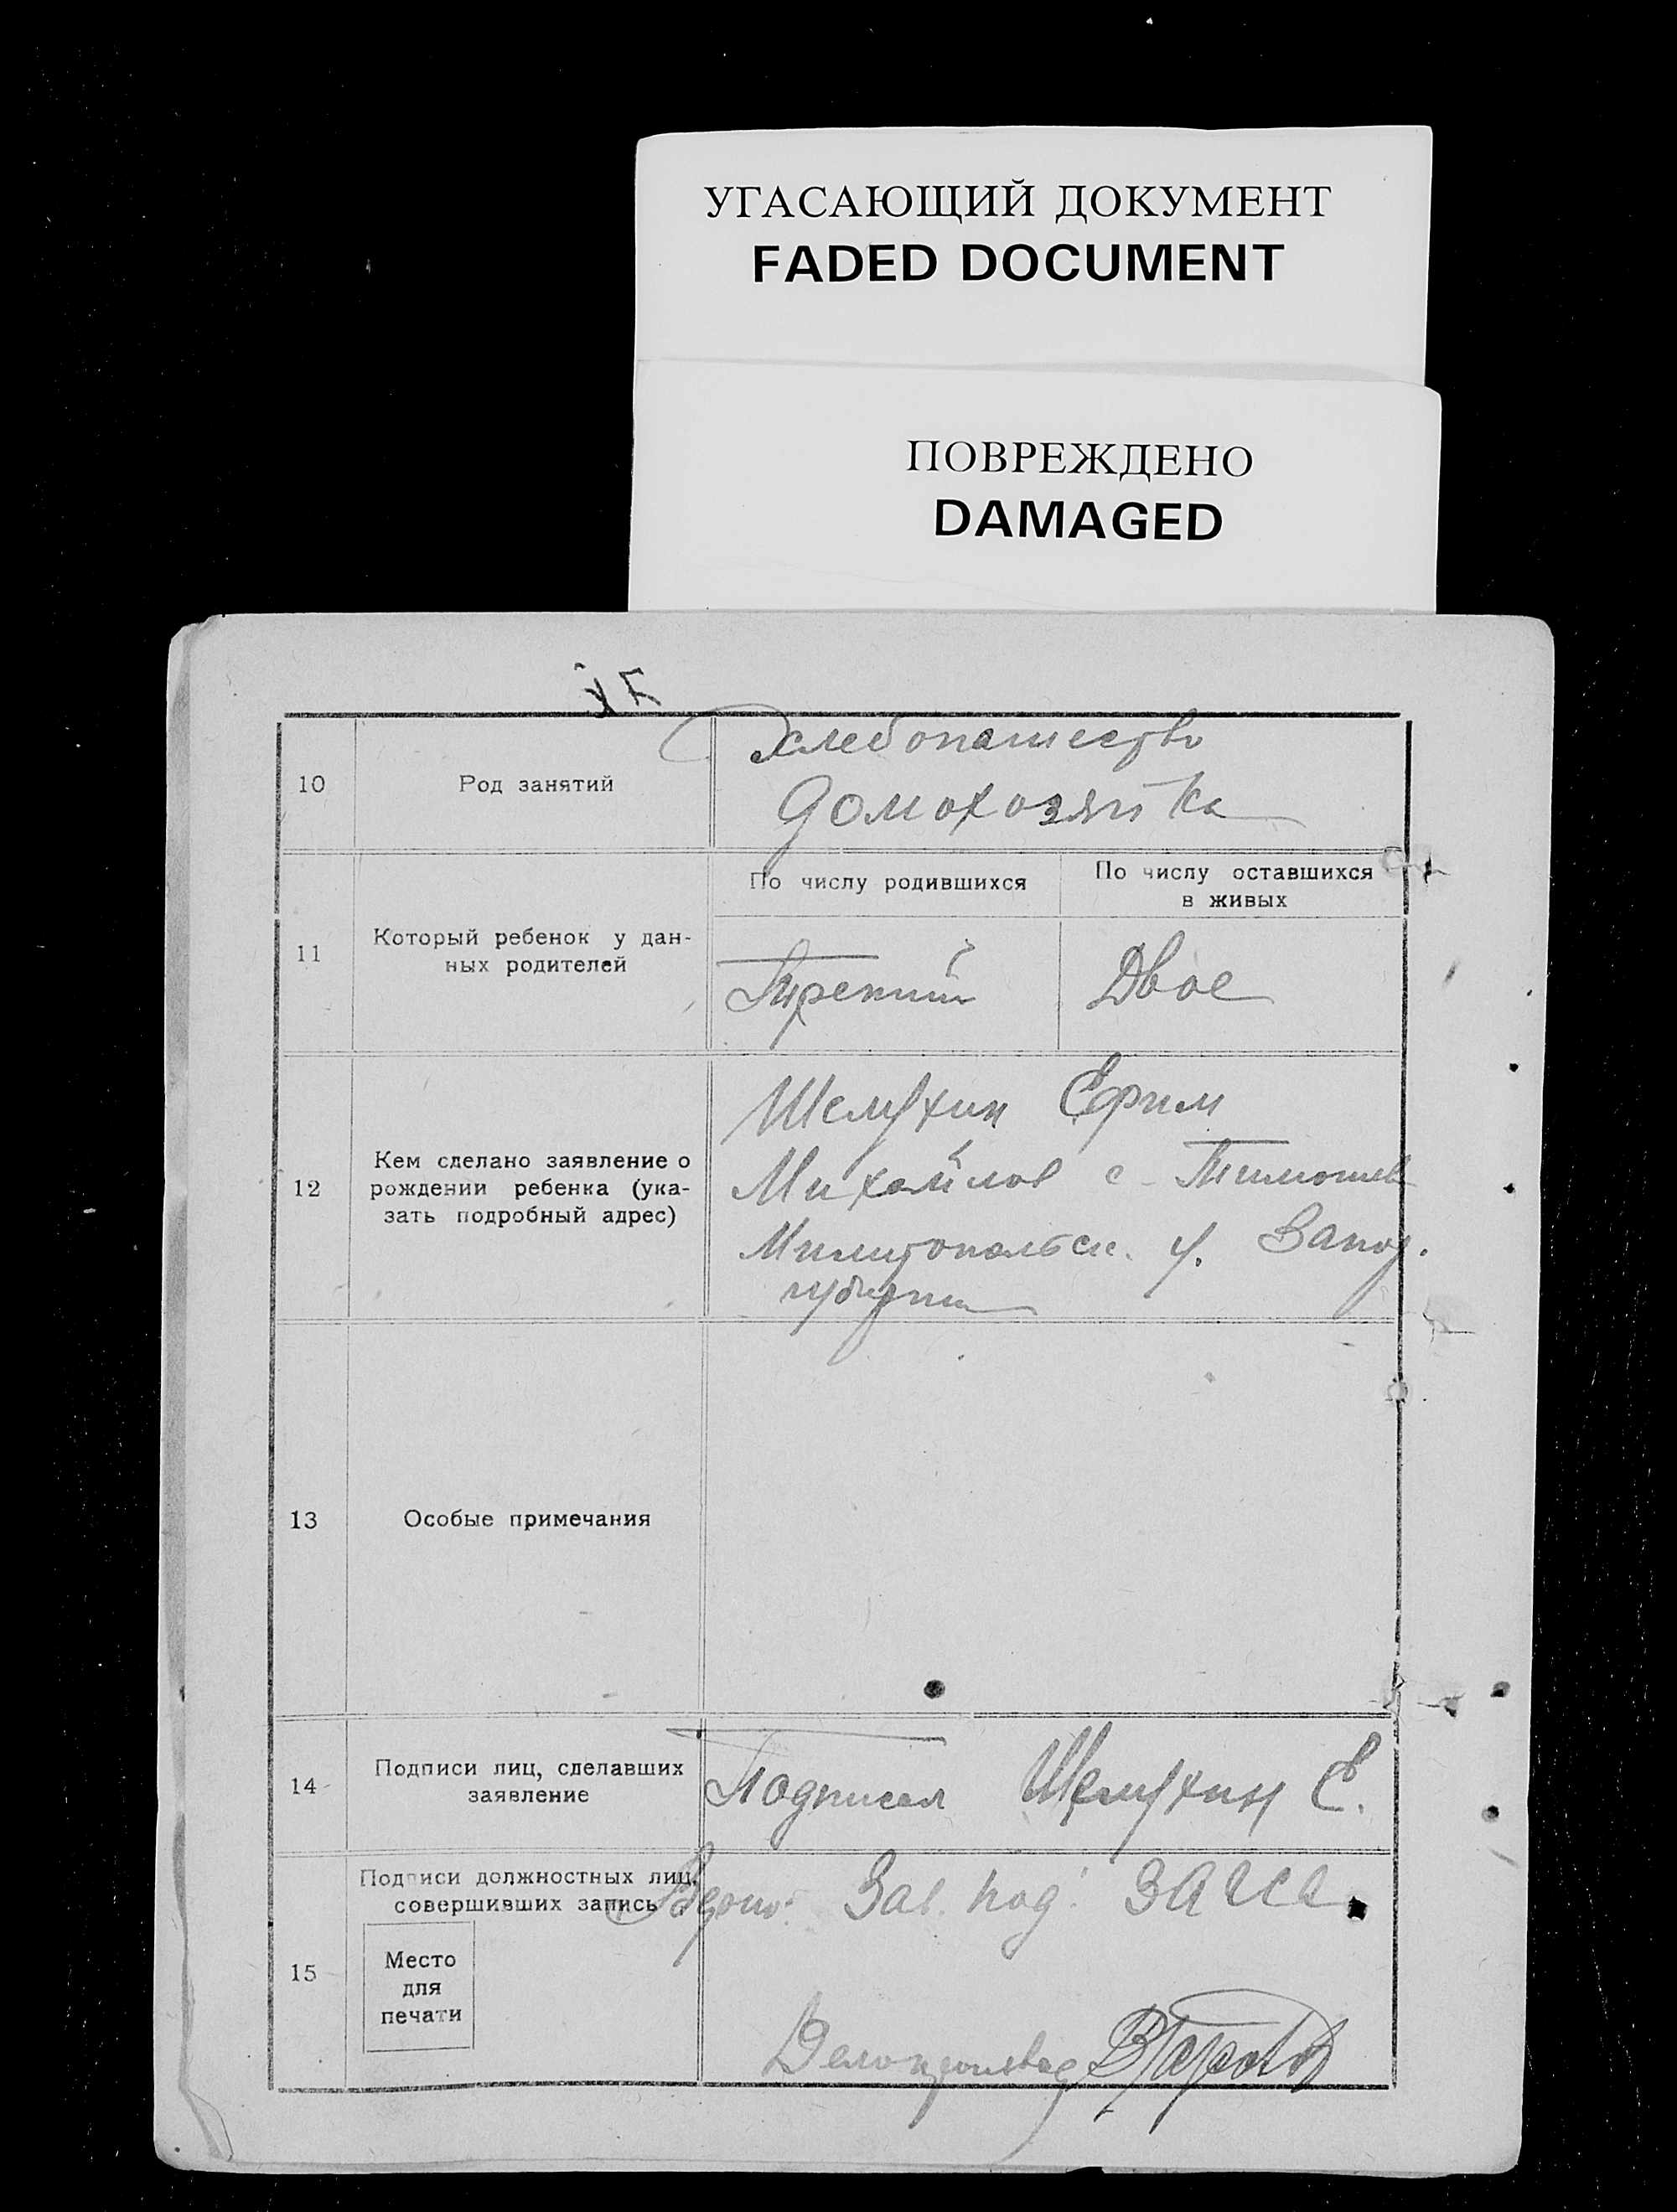 УГАСАЮЩИЙ ДОКУМЕНТ
FADED DOCUMENT
ПОВРЕЖДЕНО
DAMAGED
10
Род занятий
Хлебопашество
Домохозяйка
11
Который ребенок у дан-
ных родителей
По числу родившихся
Третий
По числу оставшихся
в живых
Двое
12
Кем сделано заявление о
рождении ребенка (ука-
зать подробный адрес)
Шемухин Ефим
Михайлов с. Тимошев
Милитопольск. у. Запор.
губерни
13
Особые примечания
14
Подписи лиц, сделавших
заявление
Подписал Шемухин Е.
15
Подписи должностных лиц,
совершивших запись
Место
для
печати
Зав. под. ЗАГСа
Делопроизвод